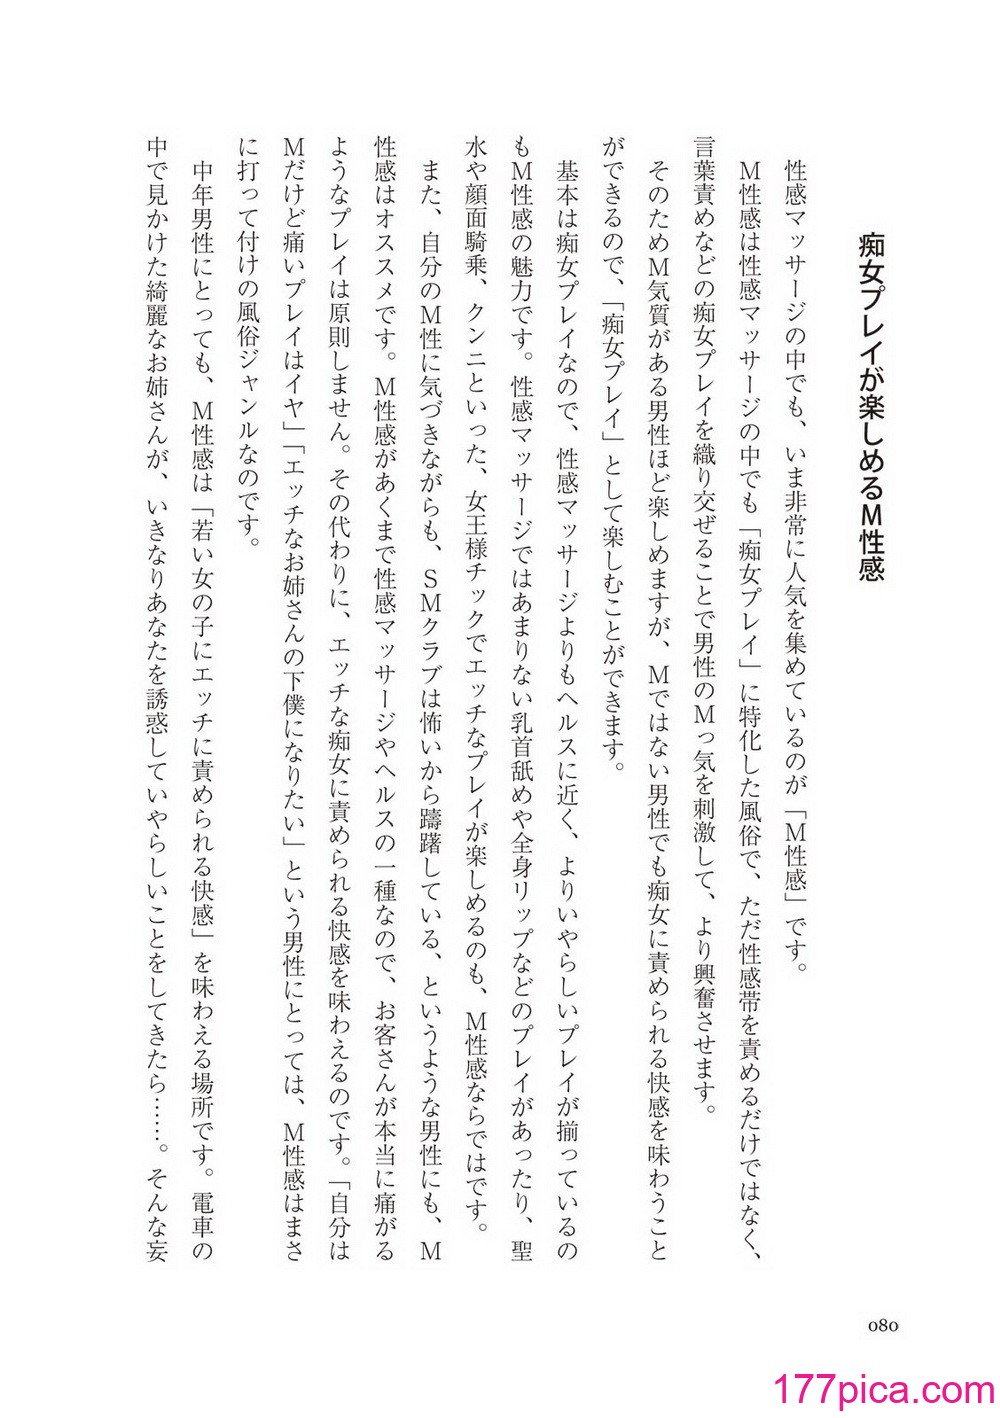 痴女プレイが楽しめるM性感
性感マッサージの中でも、いま非常に人気を集めているのが「M性感」です。
M性感は性感マッサージの中でも「痴女プレイ」に特化した風俗で、ただ性感帯を責めるだけではなく、
言葉責めなどの痴女プレイを織り交ぜることで男性のMっ気を刺激して、より興奮させます。
そのためM気質がある男性ほど楽しめますが、Mではない男性でも痴女に責められる快感を味わうこと
ができるので、「痴女プレイ」として楽しむことができます。
基本は痴女プレイなので、性感マッサージよりもヘルスに近く、よりいやらしいプレイが揃っているの
もM性感の魅力です。性感マッサージではあまりない乳首舐めや全身リップなどのプレイがあったり、聖
水や顔面騎乗、クンニといった、女王様チックでエッチなプレイが楽しめるのも、M性感ならではです。
また、自分のM性に気づきながらも、SMクラブは怖いから躊躇している、というような男性にも、M
性感はオススメです。M性感があくまで性感マッサージやヘルスの一種なので、お客さんが本当に痛がる
ようなプレイは原則しません。その代わりに、エッチな痴女に責められる快感を味わえるのです。「自分は
Mだけど痛いプレイはイヤ」「エッチなお姉さんの下僕になりたい」という男性にとっては、M性感はまさ
に打って付けの風俗ジャンルなのです。
中年男性にとっても、M性感は「若い女の子にエッチに責められる快感」を味わえる場所です。電車の
中で見かけた綺麗なお姉さんが、いきなりあなたを誘惑していやらしいことをしてきたら……。そんな妄
080
177pica.com